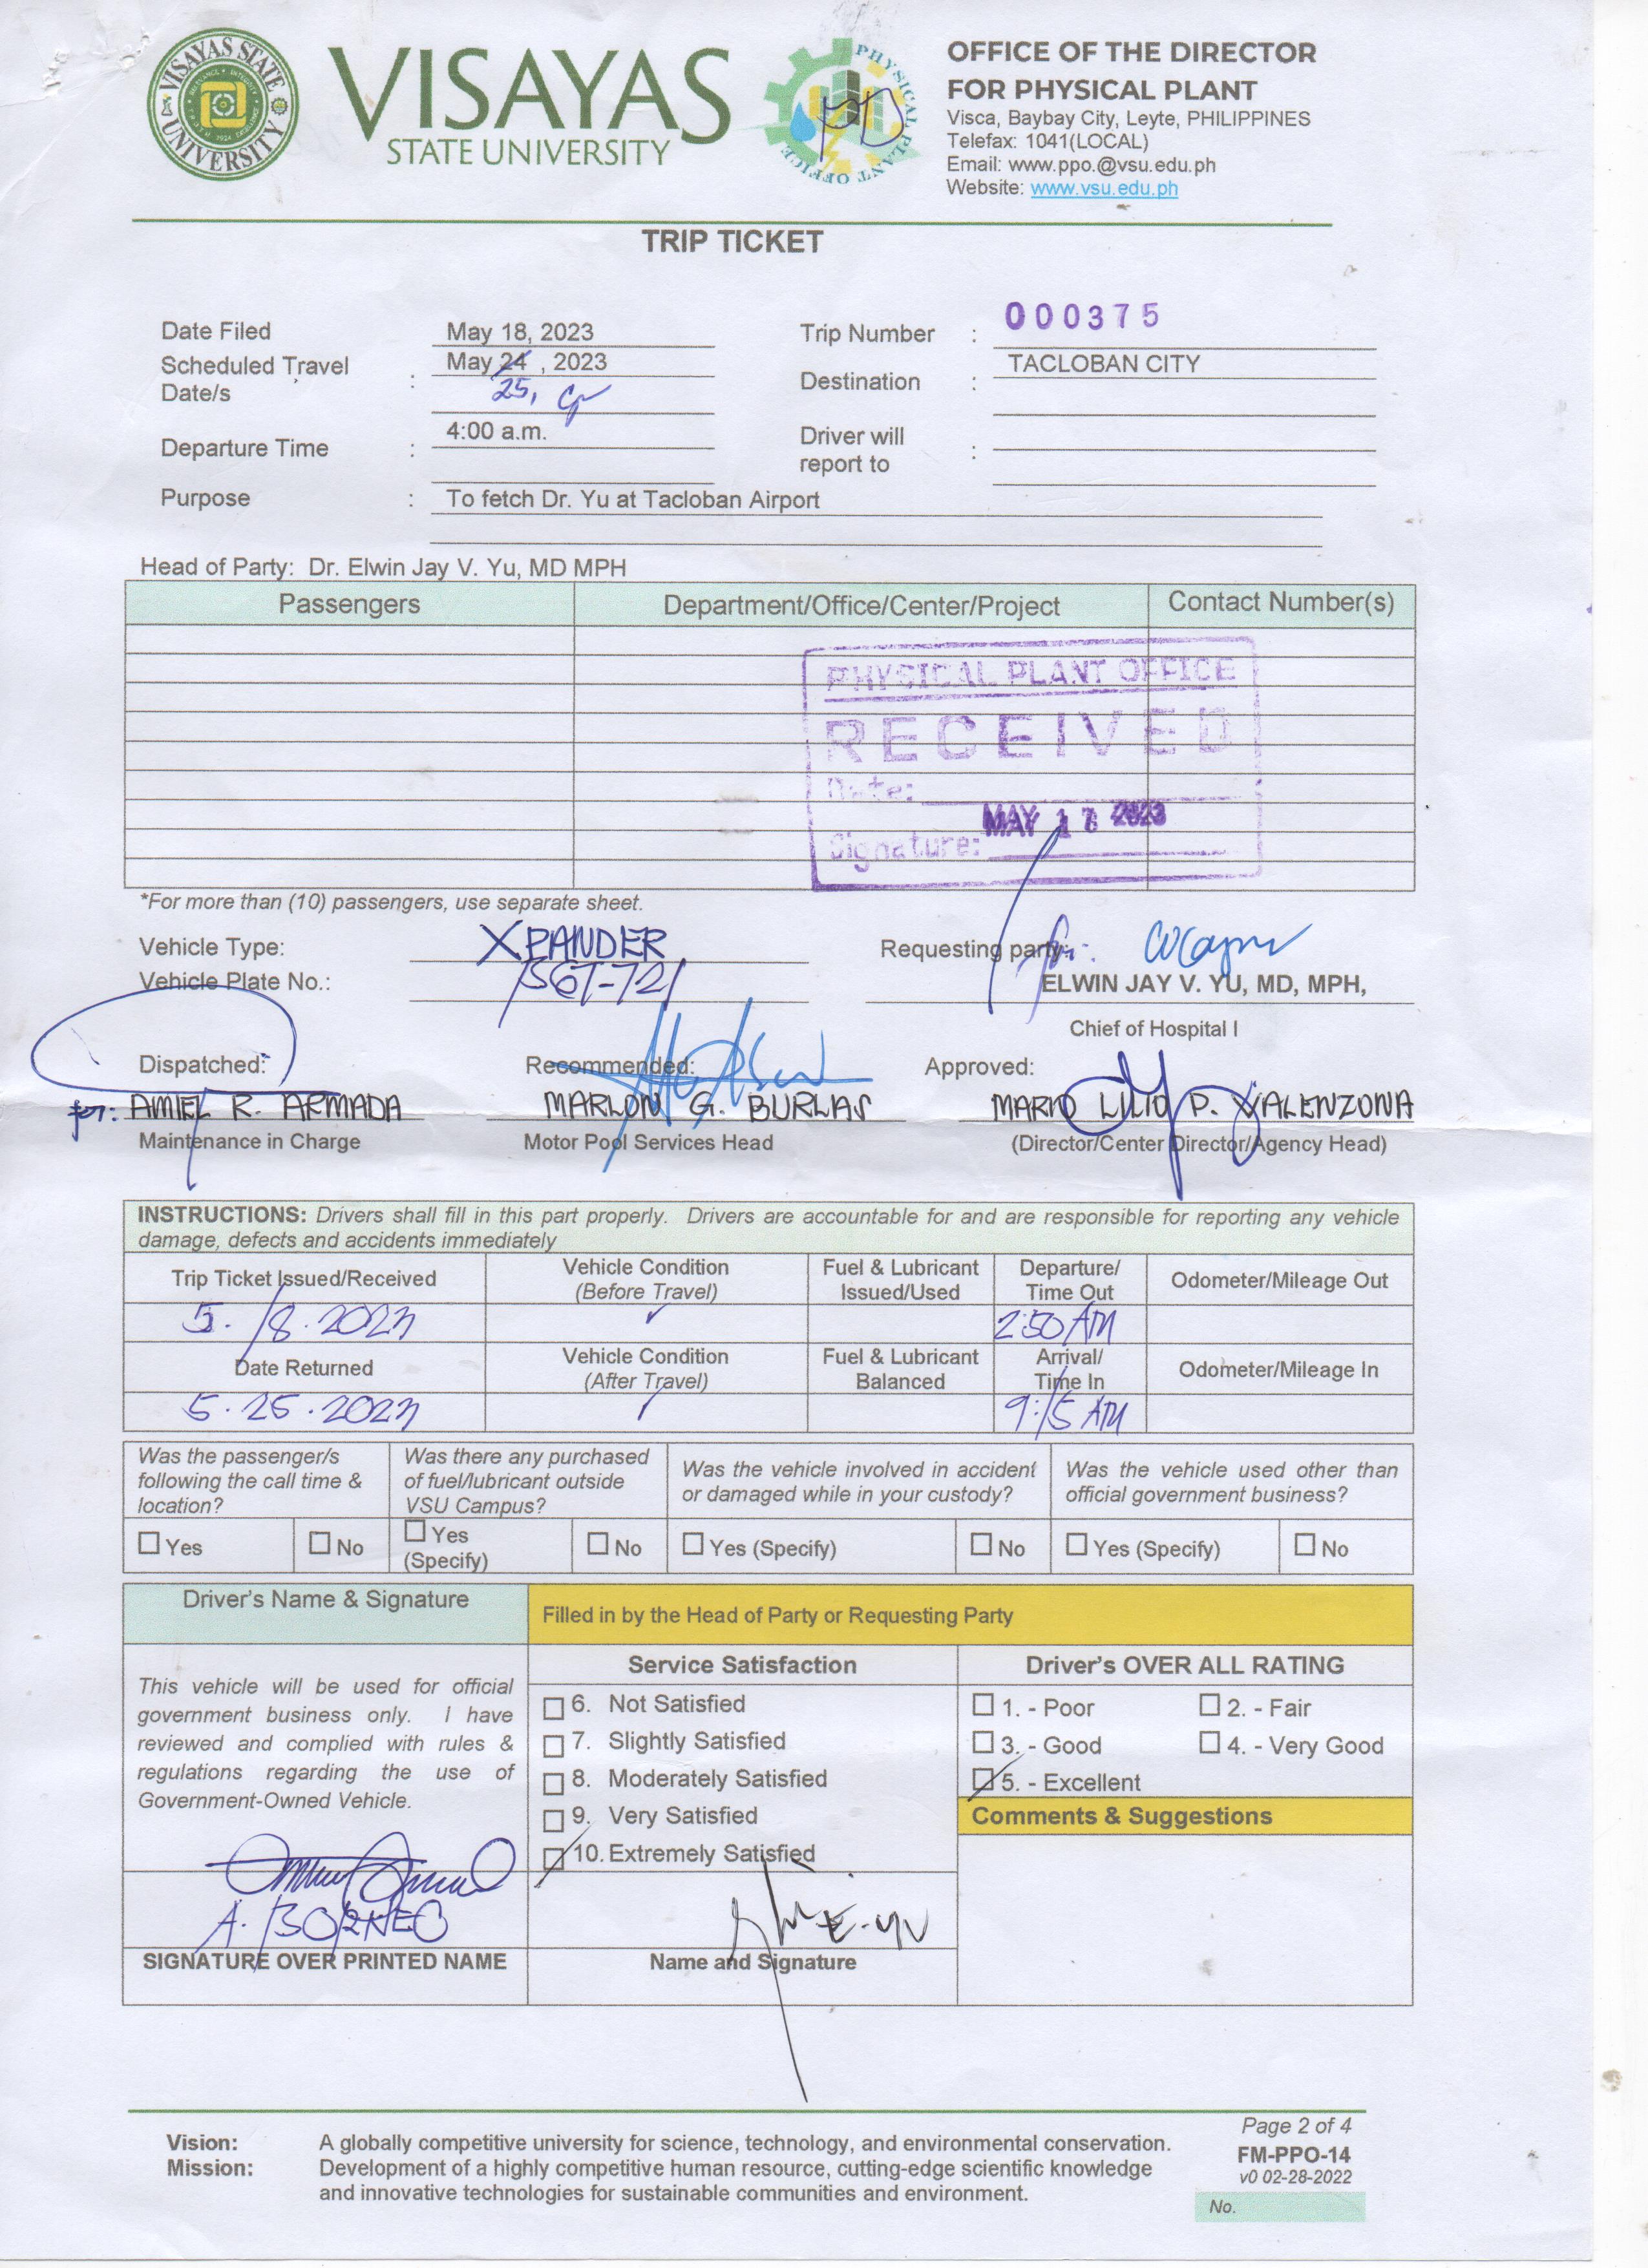 VISAYAS STATE UNIVERSITY
VISAYAS
STATE UNIVERSITY
PHYSICAL PLANT OFFICE
OFFICE OF THE DIRECTOR
FOR PHYSICAL PLANT
Visca, Baybay City, Leyte, PHILIPPINES
Telefax: 1041(LOCAL)
Email: www.ppo.@vsu.edu.ph
Website: www.vsu.edu.ph
TRIP TICKET
Date Filed May 18, 2023 Trip Number : 000375
Scheduled Travel Date/s : May 24 , 2023
25,
Destination : TACLOBAN CITY
Departure Time : 4:00 a.m. Driver will report to :
Purpose : To fetch Dr. Yu at Tacloban Airport
Head of Party: Dr. Elwin Jay V. Yu, MD MPH
Passengers Department/Office/Center/Project Contact Number(s)
PHYSICAL PLANT OFFICE
RECEIVED
Date:
MAY 2023
Signature:
*For more than (10) passengers, use separate sheet.
Vehicle Type: XPANDER Requesting party: for:
Vehicle Plate No.: ELWIN JAY V. YU, MD, MPH,
Chief of Hospital I
Dispatched: Recommended: Approved:
for: AMIEL R. ARMADA MARLON G. BURLAS MARIO LILIO P. VALENZONA
Maintenance in Charge Motor Pool Services Head (Director/Center Director/Agency Head)
INSTRUCTIONS: Drivers shall fill in this part properly. Drivers are accountable for and are responsible for reporting any vehicle
damage, defects and accidents immediately
Trip Ticket Issued/Received Vehicle Condition (Before Travel) Fuel & Lubricant Issued/Used Departure/ Time Out Odometer/Mileage Out
5.18.2023 2:50 AM
Date Returned Vehicle Condition (After Travel) Fuel & Lubricant Balanced Arrival/ Time In Odometer/Mileage In
5.25.2023 9:15 AM
Was the passenger/s following the call time & location? Was there any purchased of fuel/lubricant outside VSU Campus? Was the vehicle involved in accident or damaged while in your custody? Was the vehicle used other than official government business?
☐ Yes ☐ No ☐ Yes (Specify) ☐ No ☐ Yes (Specify) ☐ No ☐ Yes (Specify) ☐ No
Driver's Name & Signature Filled in by the Head of Party or Requesting Party
Service Satisfaction Driver's OVER ALL RATING
This vehicle will be used for official
government business only. I have
reviewed and complied with rules &
regulations regarding the use of
Government-Owned Vehicle.
6. Not Satisfied
7. Slightly Satisfied
8. Moderately Satisfied
9. Very Satisfied
10. Extremely Satisfied
1. - Poor 2. - Fair
3. - Good 4. - Very Good
5. - Excellent
Comments & Suggestions
A. BORNEO
SIGNATURE OVER PRINTED NAME Name and Signature
Page 2 of 4
Vision: A globally competitive university for science, technology, and environmental conservation.
Mission: Development of a highly competitive human resource, cutting-edge scientific knowledge
and innovative technologies for sustainable communities and environment.
FM-PPO-14
v0 02-28-2022
No.